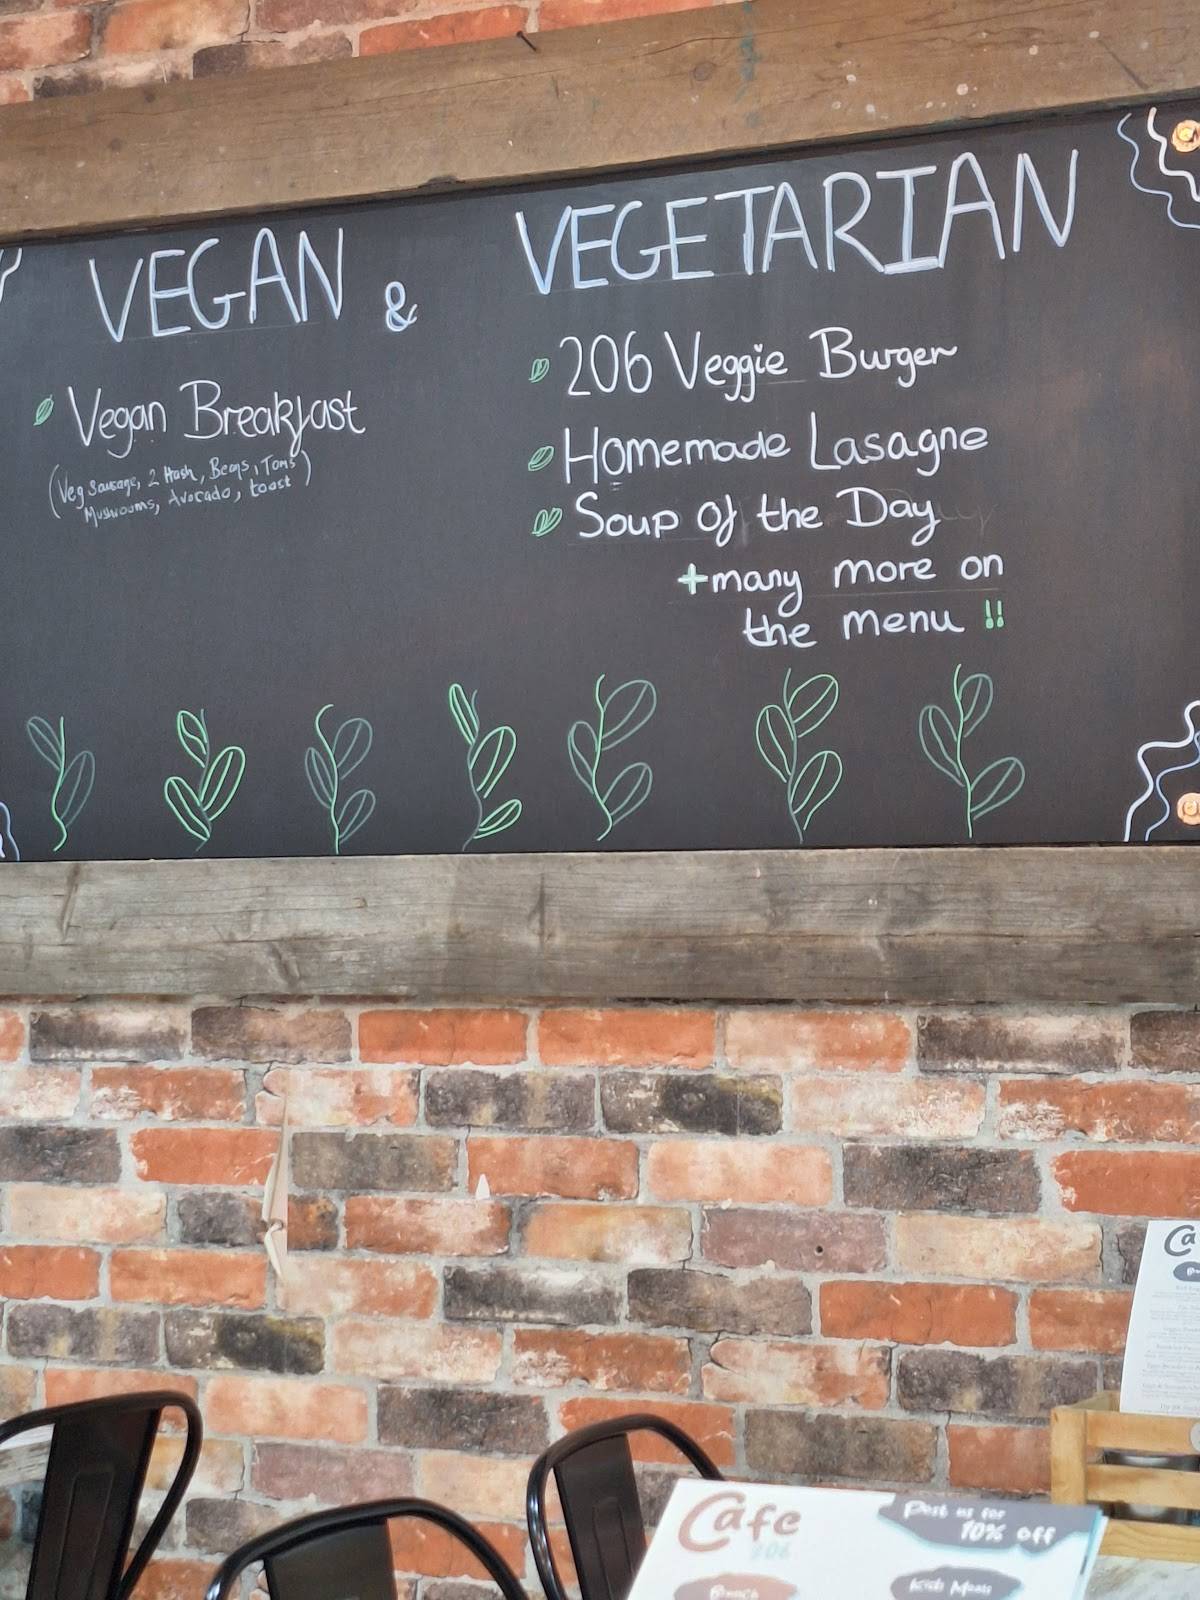 VEGAN & VEGETARIAN
Vegan Breakfast
(Veg Sausage, 2 Hash, Beans, Toms
Mushrooms, Avocado, toast)
206 Veggie Burger
Homemade Lasagne
Soup of the Day
+many more on
the menu !!
Cafe
206
Post us for
10% off
Brunch
Kids Meals
Ca